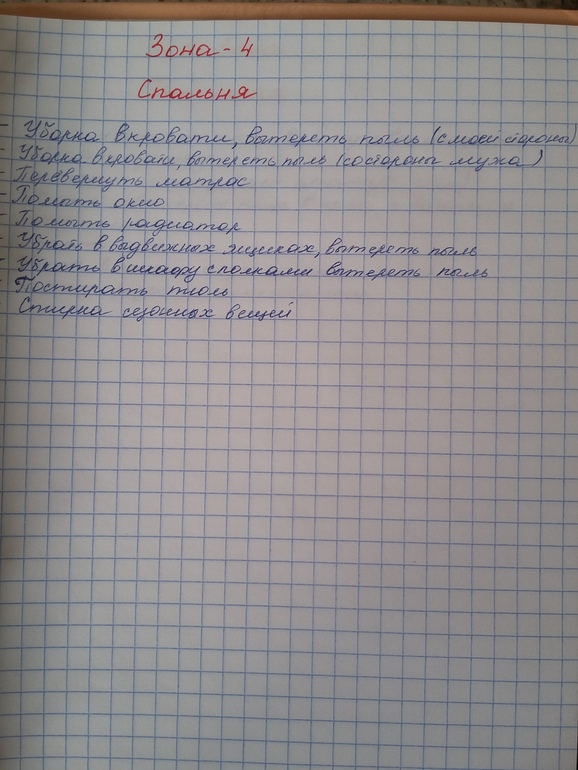 Зона - 4
Спальня
- Уборка в кровати, вытереть пыль (с моей стороны)
- Уборка в кровати, вытереть пыль (со стороны мужа)
- Перевернуть матрас
- Помыть окно
- Помыть радиатор
- Убрать в выдвижных ящиках, вытереть пыль
- Убрать в шкафу с полками вытереть пыль
- Постирать тюль
- Стирка сезонных вещей